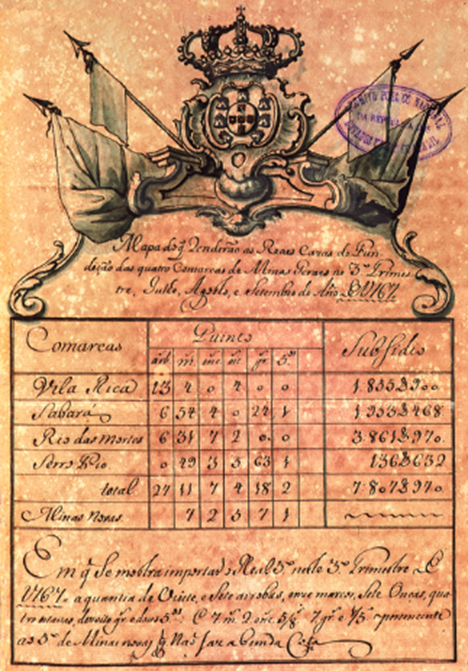 Mapa do q̃ Renderão as Reaes Cazas de Fun
dição das quatro Comarcas de Minas Geraes no 3º Trimes
tre, Julho, Agosto, e Setembro do Año D 1767
Comarcas Quintos Subsidio
arb. m. onc. 8ª gr. 5.ºˢ
Vila Rica 13 4 0 4 0 0 1.855$900
Sabará 6 54 4 0 22 1 1.953$468
Rio das Mortes 6 31 7 2 0 0 3.861$970
Serro Frio 0 49 3 5 63 1 136$632
total 27 11 7 4 18 2 7.807$970
Minas Novas 7 2 5 7 1
Em q̃ Se mostra importar o Real 5º neste 3º Trimestre D
1767. a quantia de Vinte, e Sete arrobas, onze marcos, Sete Onças, qua
tro oitavas, dezoito gr. e dous 5ºˢ
ao 5º de Minas novas q̃ Nas faz a Benda Caza